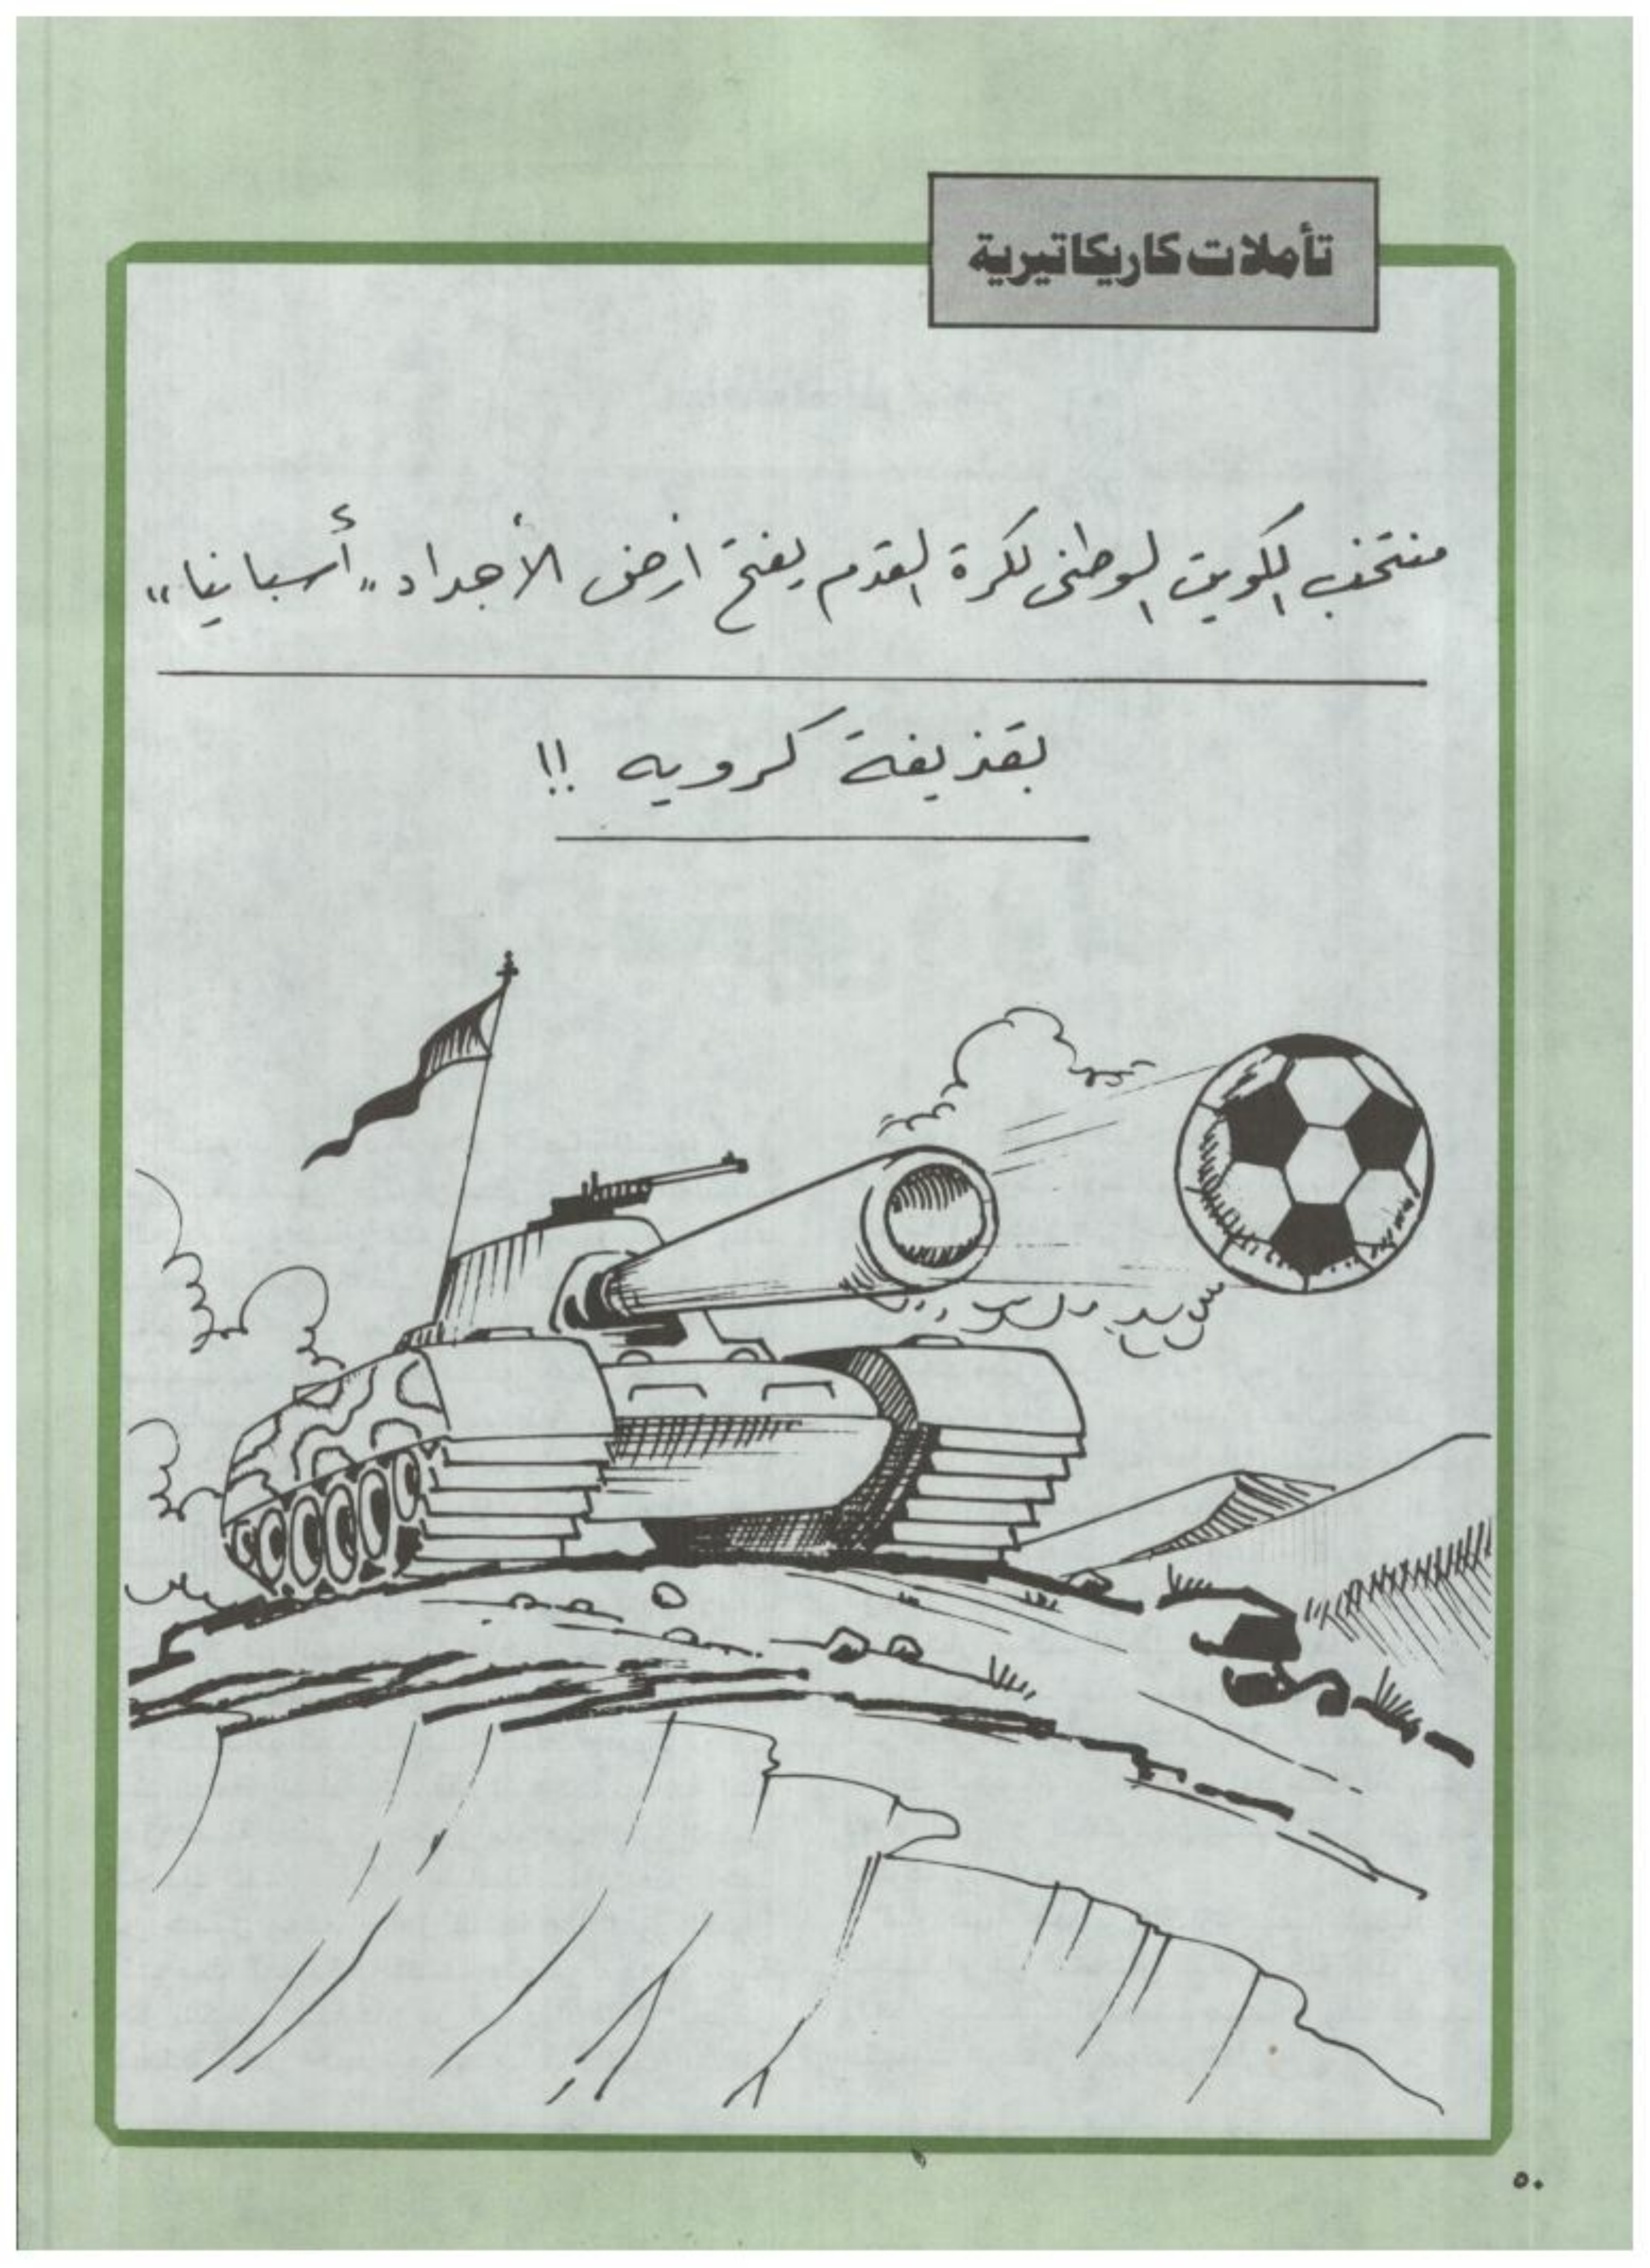 تأملات كاريكاتيرية
منتخب الكويت الوطنى لكرة القدم يفتح أرض الأجداد „أسبانيا“
بقذيفة كرويه !!
٥٠